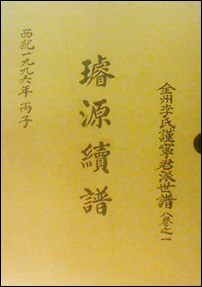 全州李氏謹寧君派世譜 八卷之一
璿源續譜
西紀一九九六年 丙子